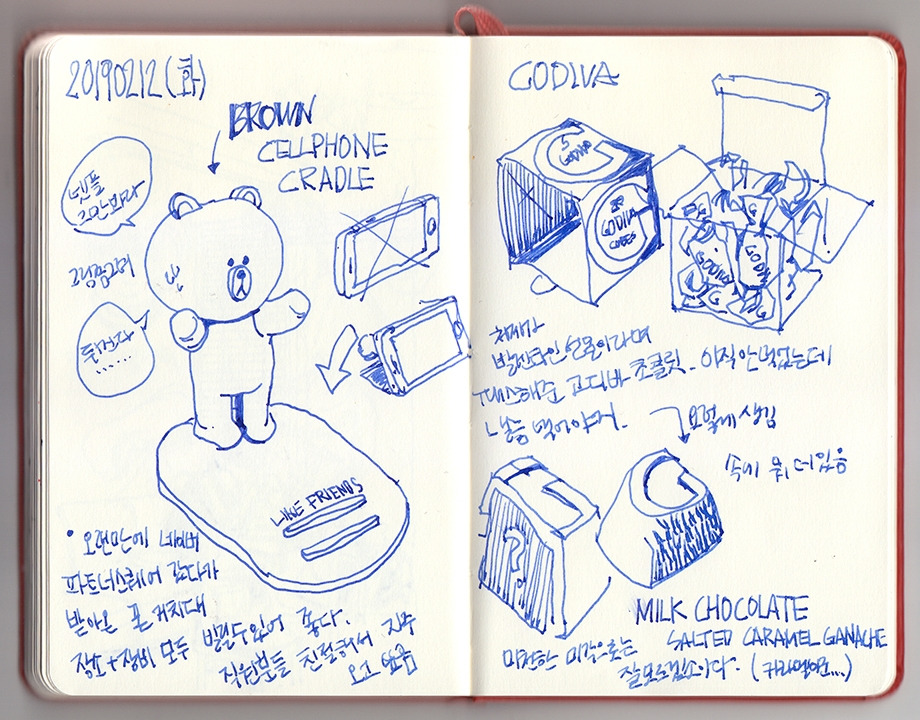 20190212 (화)
BROWN
CELLPHONE
CRADLE
넷플
고만봐라
그림좀그려
들켰다
......
LINE FRIENDS
• 오랜만에 네이버
파트너스퀘어 갔다가
받아온 폰 거치대
장소+장비 모두 빌릴수있어 좋다.
직원분들 친절해서 자주
오고 싶음
GODIVA
GODIVA
GODIVA
CUBES
GODIVA
GODIVA
G
발렌타인 선물이라며
고디바 초콜릿. 아직안먹었는데
낼름 먹어야지.
요렇게 생김
속에 뭐 더있음
?
MILK CHOCOLATE
SALTED CARAMEL GANACHE
미천한 미각으로는
잘모르겠소이다. (카라멜이란...)